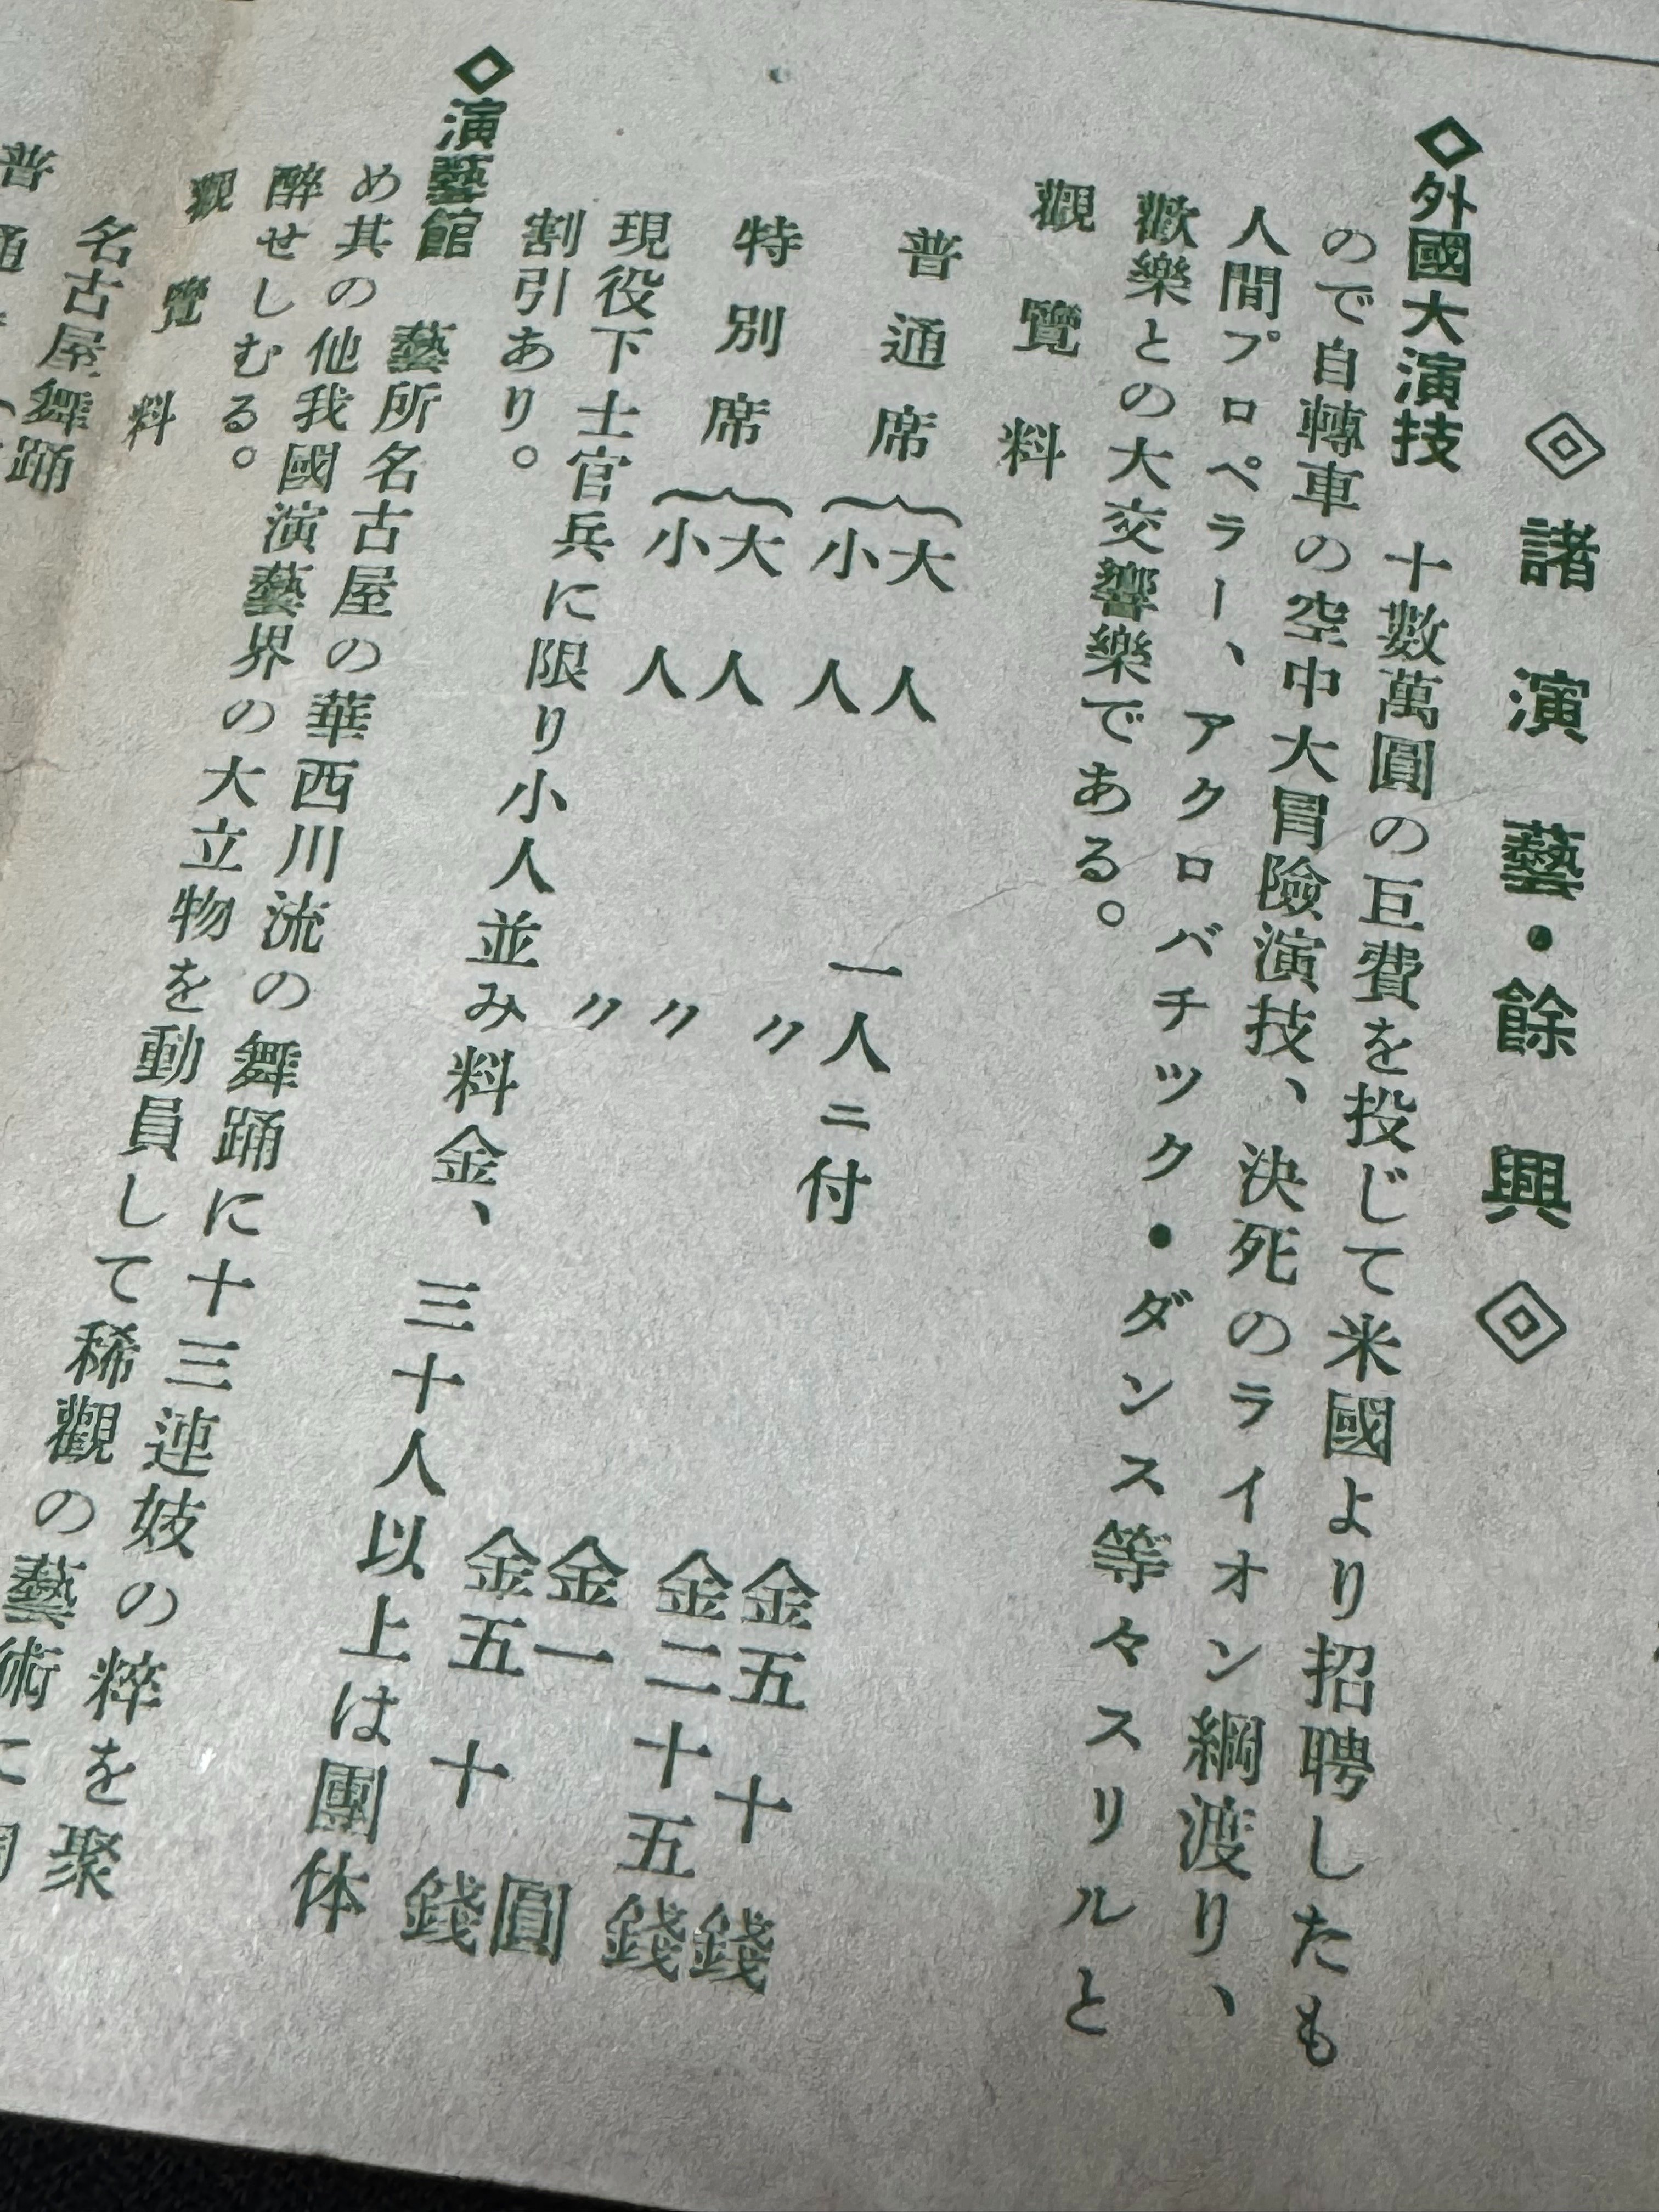 ◇諸演藝・餘興◇
◇外國大演技　十數萬圓の巨費を投じて米國より招聘したも
ので自轉車の空中大冒險演技、決死のライオン綱渡り、
人間プロペラー、アクロバチック・ダンス等々スリルと
歡樂との大交響樂である。
觀覽料
普通席 大人 一人ニ付 金五十錢
小人 〃 金二十五錢
特別席 大人 〃 金一圓
小人 〃 金五十錢
現役下士官兵に限り小人並み料金、三十人以上は團体
割引あり。
◇演藝館　藝所名古屋の華西川流の舞踊に十三連妓の粹を聚
め其の他我國演藝界の大立物を動員して稀觀の藝術に
醉せしむる。
觀覽料
名古屋舞踊
普通